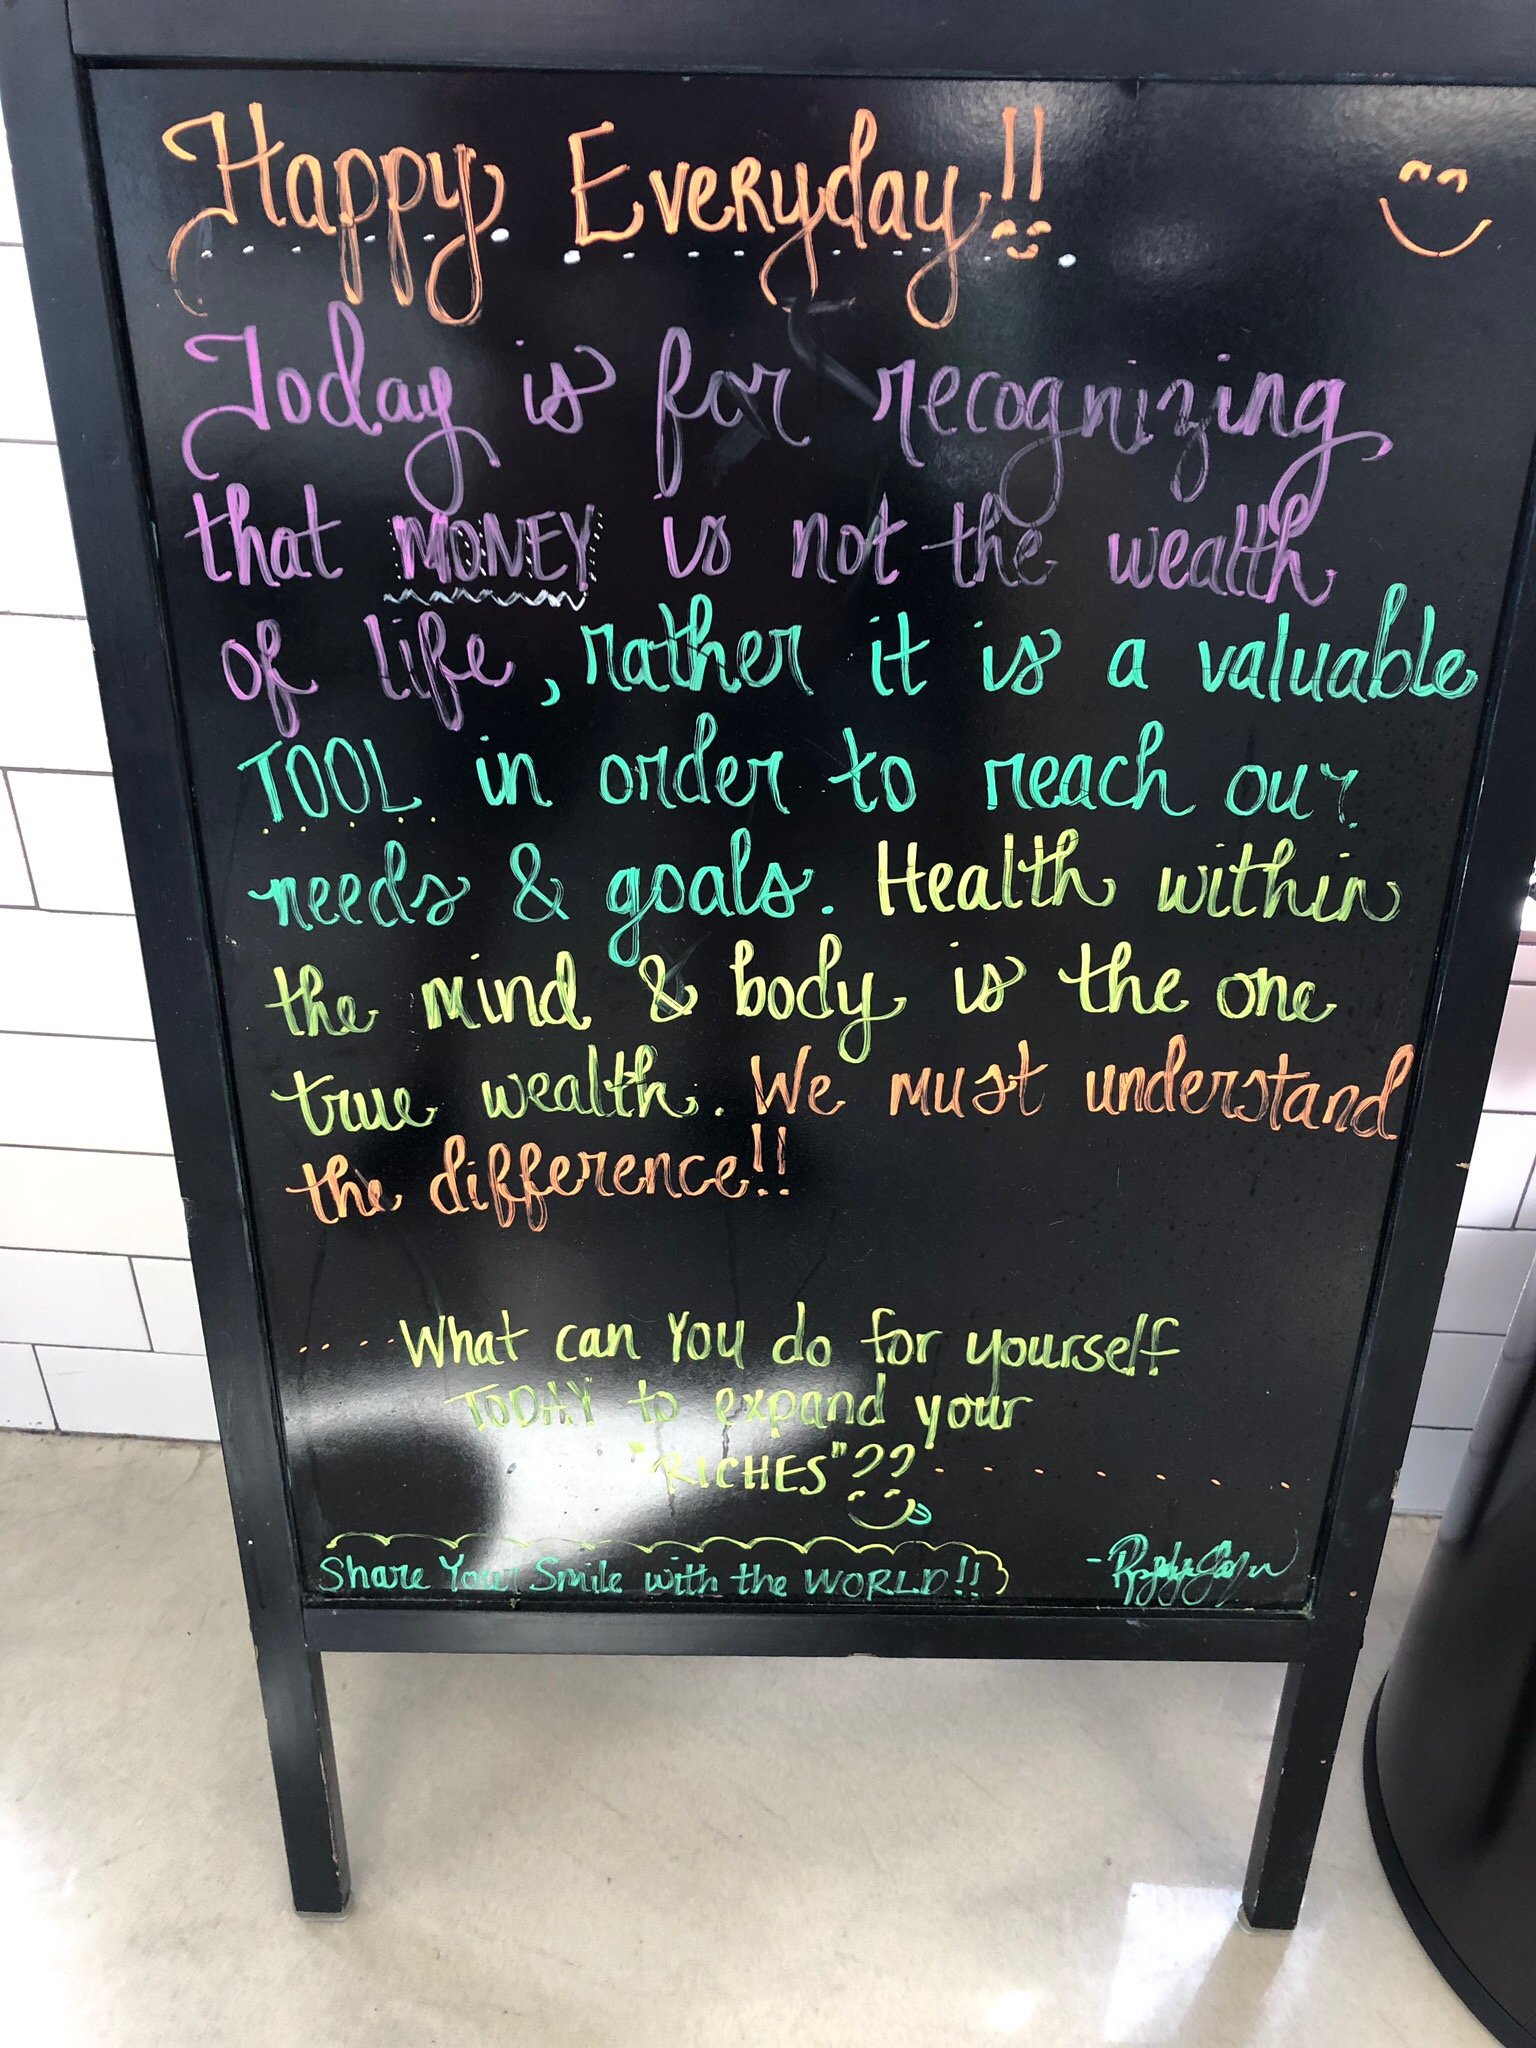 Happy Everyday!!
Today is for recognizing
that MONEY is not the wealth
of life, rather it is a valuable
TOOL in order to reach our
needs & goals. Health within
the mind & body is the one
true wealth. We must understand
the difference!!
What can You do for yourself
TODAY to expand your
"RICHES"??
Share Your Smile with the WORLD!!